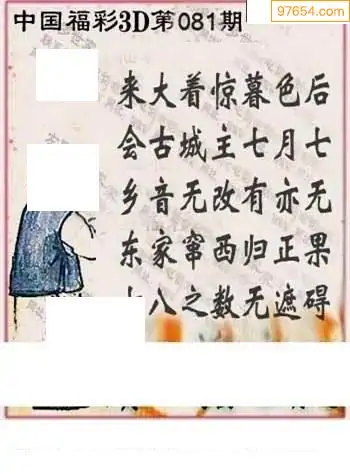 97654.com
中国福彩3D第081期
来大着惊暮色后
会古城主七月七
乡音无改有亦无
东家窜西归正果
八之数无遮碍